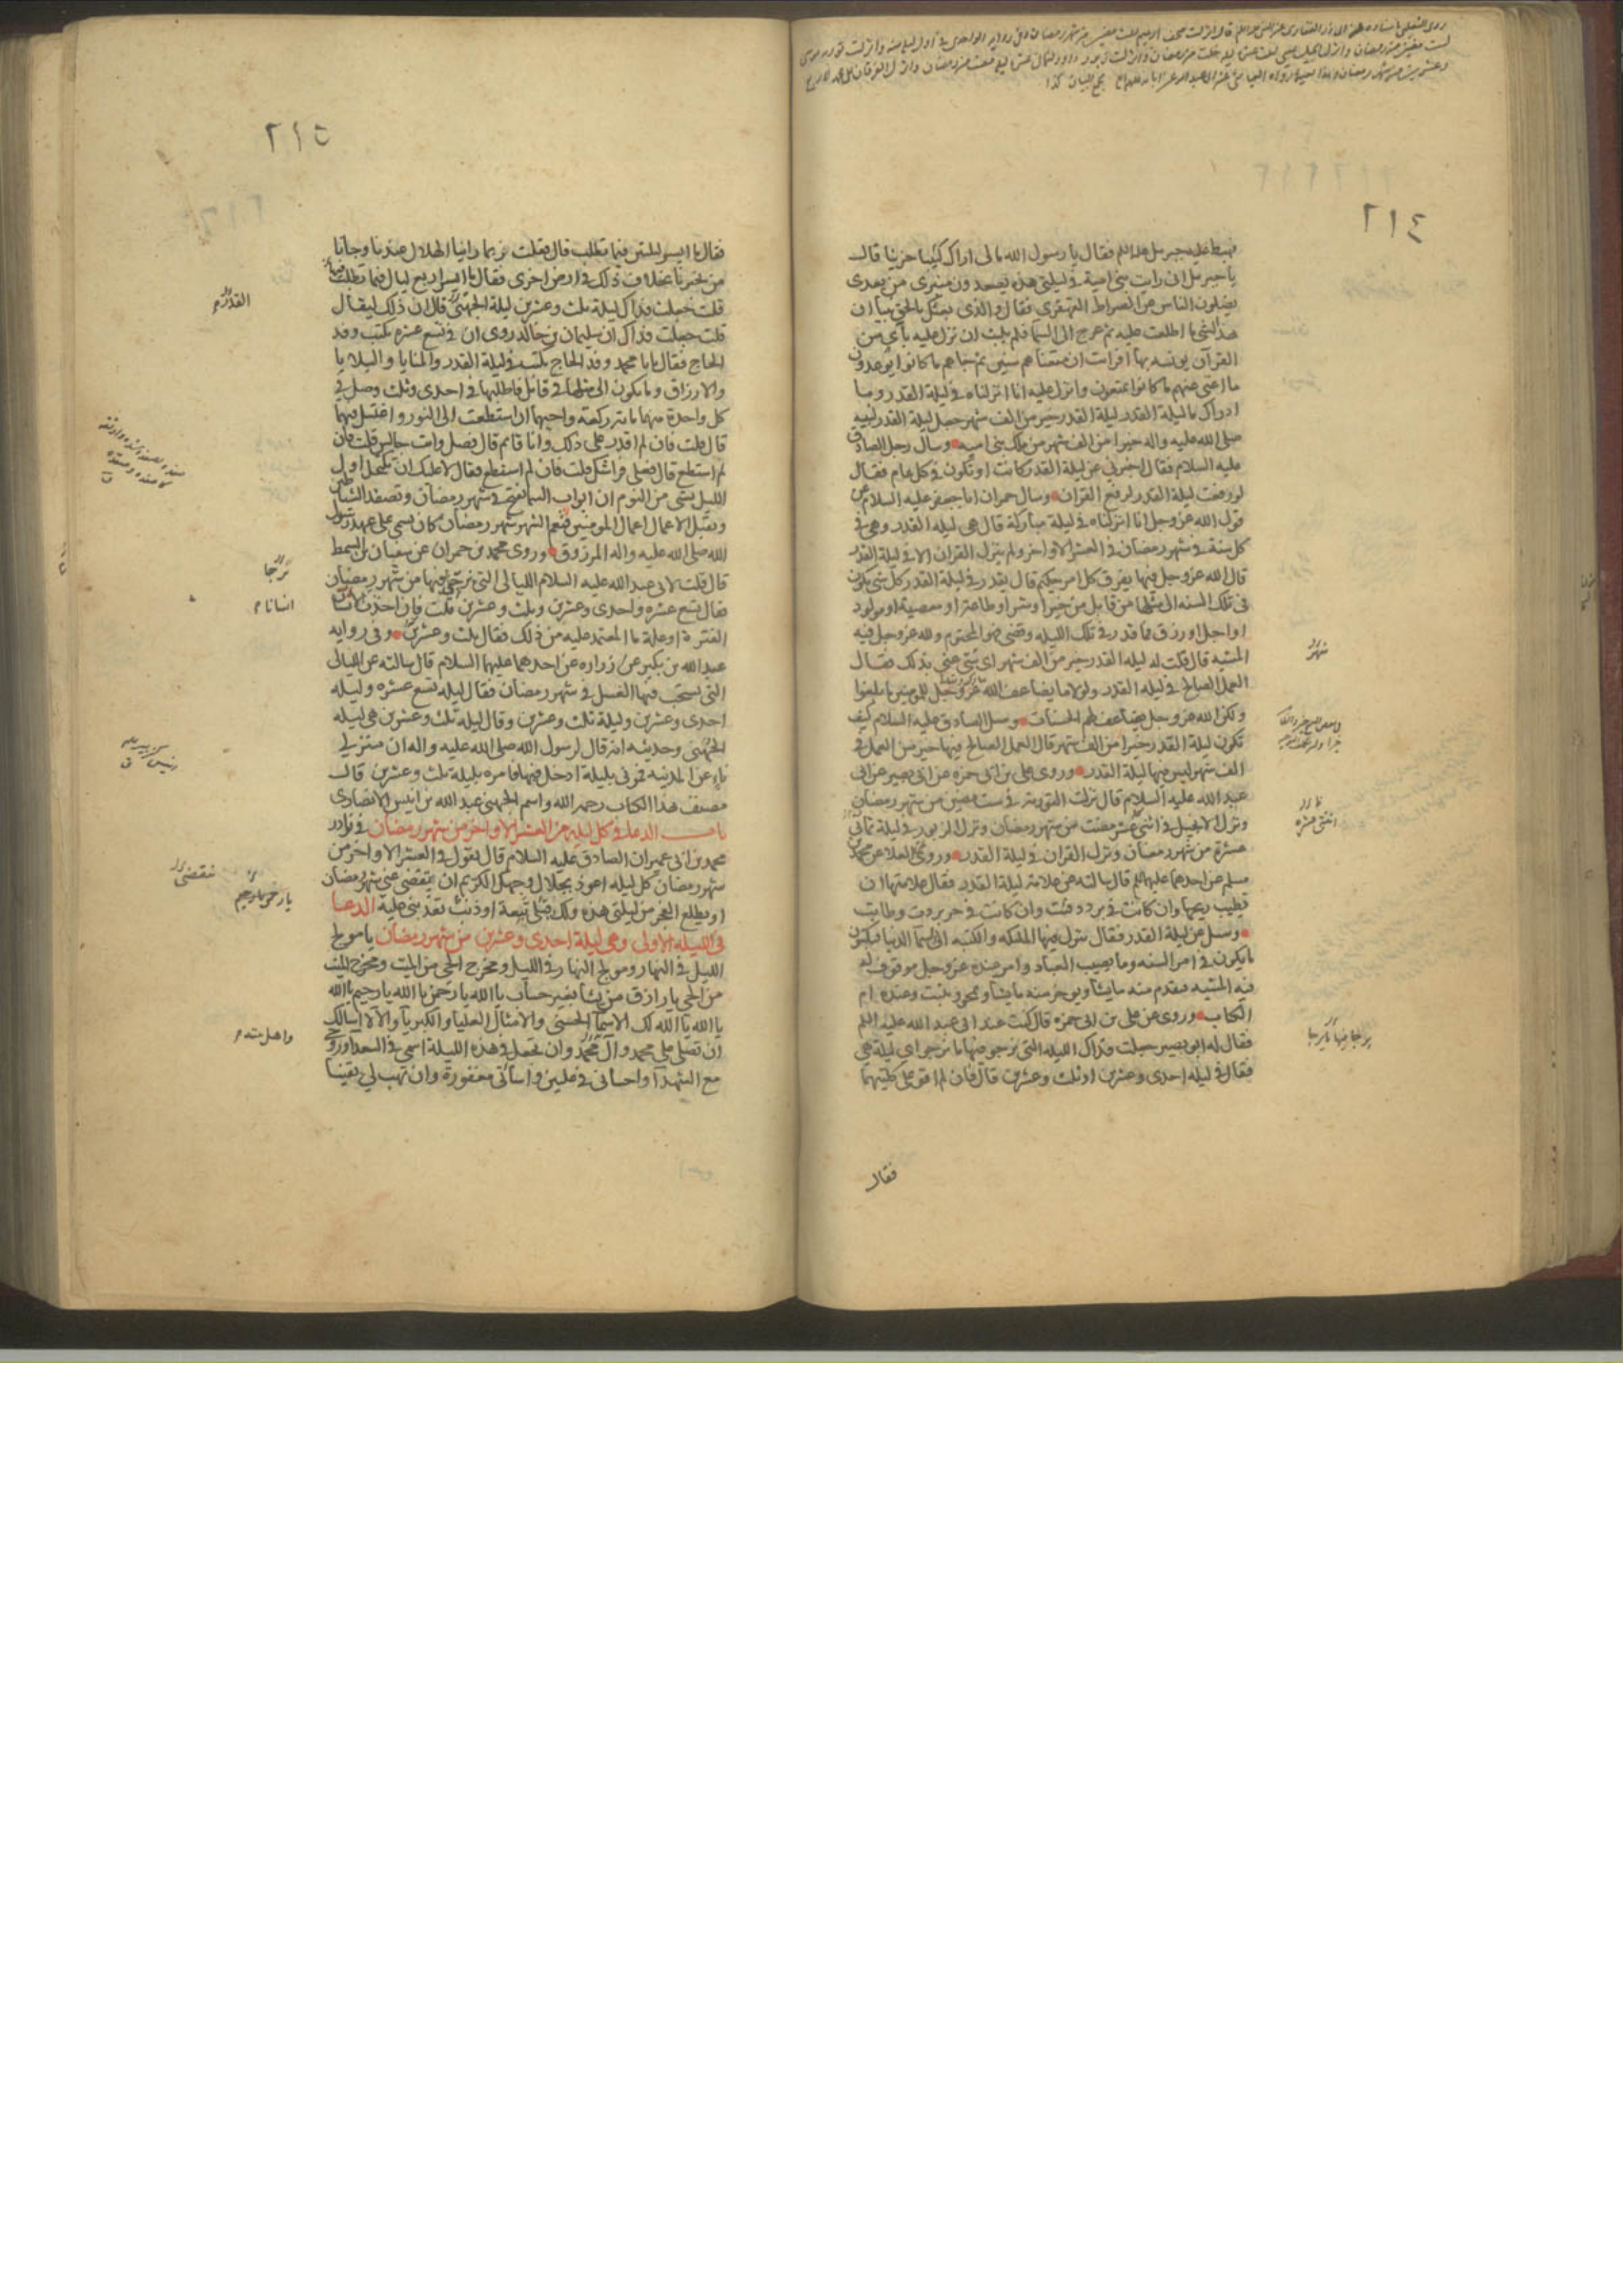 ٢١٤
فهبط عليه جبرئيل عليه السلم فقال يا رسول الله مالى اراك كئيبا حزينا قال
يا جبرئيل انى رايت بنى امية فى ليلتى هذه يصعدون منبرى من بعدى
يضلون الناس عن الصراط القهقرى فقال والذى بعثك بالحق نبيا ان
هذا لشئ ما اطلعت عليه ثم عرج الى السما فلم يلبث ان نزل عليه بآى من
القرآن يونسه بها افرايت ان متعناهم سنين ثم جاءهم ما كانوا يوعدون
ما اغنى عنهم ما كانوا يمتعون وانزل عليه انا انزلناه فى ليلة القدر وما
ادراك ما ليلة القدر ليلة القدر خير من الف شهر جعل ليلة القدر لنبيه
صلى الله عليه واله خيرا من الف شهر من ملك بنى اميه وسال رجل الصادق
عليه السلام فقال اخبرنى عن ليلة القدر كانت او تكون فى كل عام فقال
لو رفعت ليلة القدر لرفع القران وسال حمران ابا جعفر عليه السلام عن
قول الله عز وجل انا انزلناه فى ليلة مباركة قال هى ليله القدر وهى فى
كل سنة فى شهر رمضان فى العشر الاواخر ولم ينزل القران الا فى ليلة القدر
قال الله عز وجل فيها يفرق كل امر حكيم قال يقدر فى ليلة القدر كل شئ يكون
فى تلك السنه الى مثلها من قابل من خير او شر او طاعة او معصية او مولود
او اجل او رزق فما قدر فى تلك الليله وقضى فهو المحتوم ولله عز وجل فيه
المشيه قال قلت له ليله القدر خير من الف شهر اى شئ عنى بذلك فقال
العمل الصالح فى ليله القدر ولولا ما يضاعف الله عز وجل للمومنين ما بلغوا
ولكن الله عز وجل يضاعف لهم الحسنات وسئل الصادق عليه السلام كيف
تكون ليلة القدر خيرا من الف شهر قال العمل الصالح فيها خير من العمل فى
الف شهر ليس فيها ليلة القدر وروى على بن ابى حمزه عن ابى بصير عن ابى
عبد الله عليه السلام قال نزلت التورية فى ست مضين من شهر رمضان
ونزل الانجيل فى اثنى عشر مضت من شهر رمضان ونزل الزبور فى ليلة ثمانى
عشرة من شهر رمضان ونزل القران فى ليلة القدر وروى العلا عن محمد بن
مسلم عن احدهما عليهما السلم قال سالته عن علامة ليلة القدر فقال علامتها ان
تطيب ريحها وان كانت فى برد دفئت وان كانت فى حر بردت وطابت
وسئل عن ليلة القدر فقال تنزل فيها الملئكه والكتبه الى السما الدنيا فيكتبون
ما يكون فى امر السنه وما يصيب العباد وامر عنده عز وجل موقوف له
فيه المشيه فيقدم منه ما يشا ويوخر منه ما يشا ويمحو ويثبت وعنده ام
الكتاب وروى عن على بن ابى حمزه قال كنت عند ابى عبد الله عليه السلم
فقال له ابو بصير جعلت فداك الليله التى نرجو فيها ما نرجو اى ليلة هى
فقال فى ليله احدى وعشرين او ثلث وعشرين قال فان لم اقو على كلتيهما
فقال
شهر
اثنتى عشره
٢١٥
فقال ما ايسر ليلتين فيما تطلب قال فقلت ربما راينا الهلال عندنا وجانا
من يخبرنا بخلاف ذلك فى ارض اخرى فقال ما ايسر اربع ليال فيما تطلب فيها
قلت جعلت فداك ليلة ثلث وعشرين ليلة الجهنى قال ان ذلك ليقال
قلت جعلت فداك ان سليمان بن خالد روى ان فى تسع عشره يكتب وفد
الحاج فقال يا با محمد وفد الحاج يكتب فى ليلة القدر والمنايا والبلايا
والارزاق وما يكون الى مثلها فى قابل فاطلبها فى احدى وثلث وصل فى
كل واحدة منهما مائة ركعة واحيهما ان استطعت الى النور واغتسل فيهما
قال قلت فان لم اقدر على ذلك وانا قائم قال فصل وانت جالس قلت فان
لم استطع قال فعلى فراشك قلت فان لم استطع فقال لا عليك ان تكتحل اول
الليل بشئ من النوم ان ابواب السما تفتح فى شهر رمضان وتصفد الشياطين
وتقبل الاعمال اعمال المومنين نعم الشهر شهر رمضان كان يسمى على عهد رسول
الله صلى الله عليه واله المرزوق وروى محمد بن حمران عن سفيان بن السمط
قال قلت لابى عبد الله عليه السلام الليالى التى يرجى فيها من شهر رمضان
فقال تسع عشره واحدى وعشرين وثلث وعشرين قلت فان اخذت انسانا
الفترة او علة ما المعتمد عليه من ذلك فقال ثلث وعشرين وفى روايه
عبد الله بن بكير عن زراره عن احدهما عليهما السلام قال سالته عن الليالى
التى يستحب فيها الغسل فى شهر رمضان فقال ليله تسع عشره وليله
احدى وعشرين وليلة ثلث وعشرين وقال ليلة ثلث وعشرين هى ليله
الجهنى وحديثه انه قال لرسول الله صلى الله عليه واله ان منزلى
ناء عن المدينه فمرنى بليلة ادخل فيها فامره بليلة ثلث وعشرين قال
مصنف هذا الكتاب رحمه الله واسم الجهنى عبد الله بن انيس الانصارى
باب الدعا فى كل ليله من العشر الاواخر من شهر رمضان فى نوادر
محمد بن ابى عمير ان الصادق عليه السلام قال تقول فى العشر الاواخر من
شهر رمضان كل ليله اعوذ بجلال وجهك الكريم ان ينقضى عنى شهر رمضان
او يطلع الفجر من ليلتى هذه ولك قبلى تبعة او ذنب تعذبنى عليه الدعا
فى الليله الاولى وهى ليلة احدى وعشرين من شهر رمضان يا مولج
الليل فى النهار ومولج النهار فى الليل ومخرج الحى من الميت ومخرج الميت
من الحى يا رازق من يشا بغير حساب يا الله يا رحمن يا الله يا رحيم يا الله
يا الله يا الله لك الاسما الحسنى والامثال العليا والكبريا والالا اسالك
ان تصلى على محمد وآل محمد وان تجعل فى هذه الليلة اسمى فى السعدا وروحى
مع الشهدا واحسانى فى عليين واساتى مغفورة وان تهب لى يقينا
القدر
انسانا